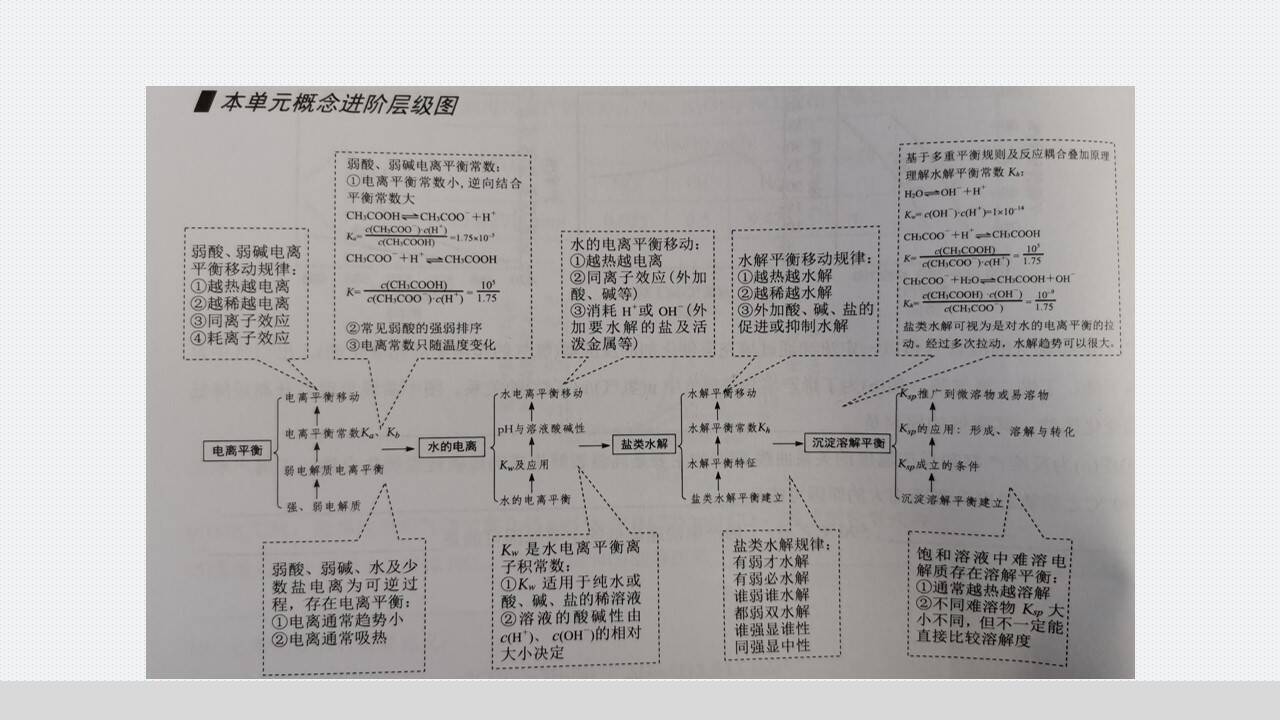 本单元概念进阶层级图
弱酸、弱碱电离
平衡移动规律：
①越热越电离
②越稀越电离
③同离子效应
④耗离子效应
弱酸、弱碱电离平衡常数：
①电离平衡常数小,逆向结合
平衡常数大
CH₃COOH⇌CH₃COO⁻+H⁺
Kₐ=c(CH₃COO⁻)·c(H⁺)/c(CH₃COOH)=1.75×10⁻⁵
CH₃COO⁻+H⁺⇌CH₃COOH
K=c(CH₃COOH)/c(CH₃COO⁻)·c(H⁺)=10⁵/1.75
②常见弱酸的强弱排序
③电离常数只随温度变化
水的电离平衡移动：
①越热越电离
②同离子效应(外加
酸、碱等)
③消耗 H⁺或 OH⁻(外
加要水解的盐及活
泼金属等)
水解平衡移动规律：
①越热越水解
②越稀越水解
③外加酸、碱、盐的
促进或抑制水解
基于多重平衡规则及反应耦合叠加原理
理解水解平衡常数 Kₕ：
H₂O⇌OH⁻+H⁺
K_w=c(OH⁻)·c(H⁺)=1×10⁻¹⁴
CH₃COO⁻+H⁺⇌CH₃COOH
K=c(CH₃COOH)/c(CH₃COO⁻)·c(H⁺)=10⁵/1.75
CH₃COO⁻+H₂O⇌CH₃COOH+OH⁻
Kₕ=c(CH₃COOH)·c(OH⁻)/c(CH₃COO⁻)=10⁻⁹/1.75
盐类水解可视为是对水的电离平衡的拉
动。经过多次拉动，水解趋势可以很大。
电离平衡
电离平衡移动
电离平衡常数Kₐ、K_b
弱电解质电离平衡
强、弱电解质
水的电离
水电离平衡移动
pH与溶液酸碱性
K_w及应用
水的电离平衡
盐类水解
水解平衡移动
水解平衡常数Kₕ
水解平衡特征
盐类水解平衡建立
沉淀溶解平衡
K_sp推广到微溶物或易溶物
K_sp的应用：形成、溶解与转化
K_sp成立的条件
沉淀溶解平衡建立
弱酸、弱碱、水及少
数盐电离为可逆过
程，存在电离平衡：
①电离通常趋势小
②电离通常吸热
K_w 是水电离平衡离
子积常数：
①K_w 适用于纯水或
酸、碱、盐的稀溶液
②溶液的酸碱性由
c(H⁺)、c(OH⁻)的相对
大小决定
盐类水解规律：
有弱才水解
有弱必水解
谁弱谁水解
都弱双水解
谁强显谁性
同强显中性
饱和溶液中难溶电
解质存在溶解平衡：
①通常越热越溶解
②不同难溶物 K_sp 大
小不同，但不一定能
直接比较溶解度